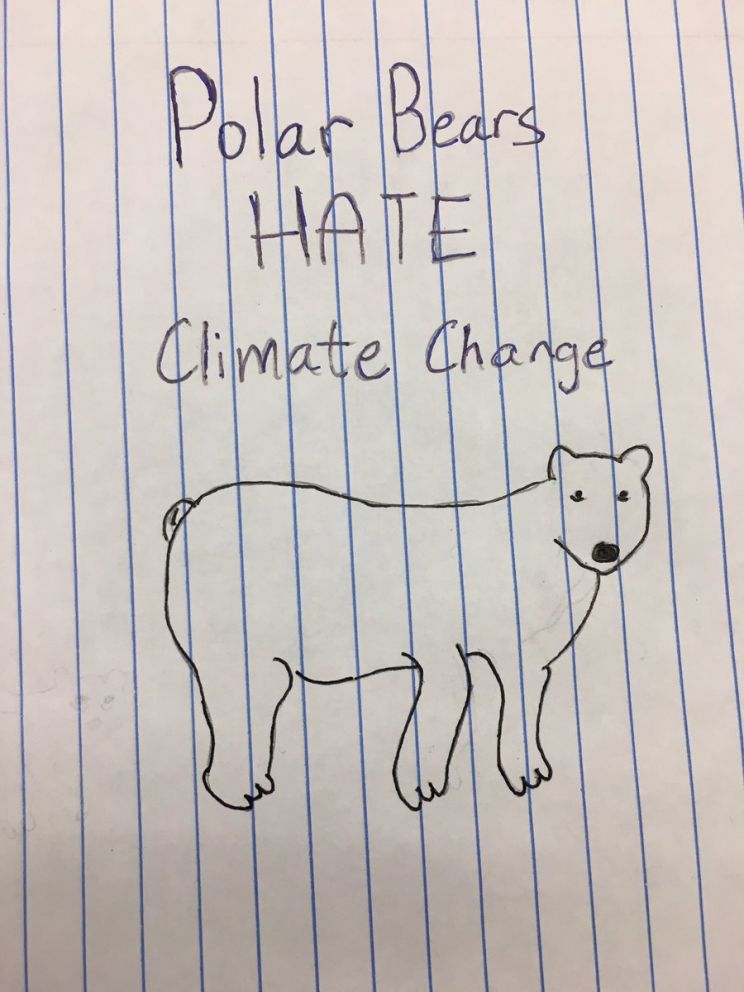 Polar Bears
HATE
Climate Change